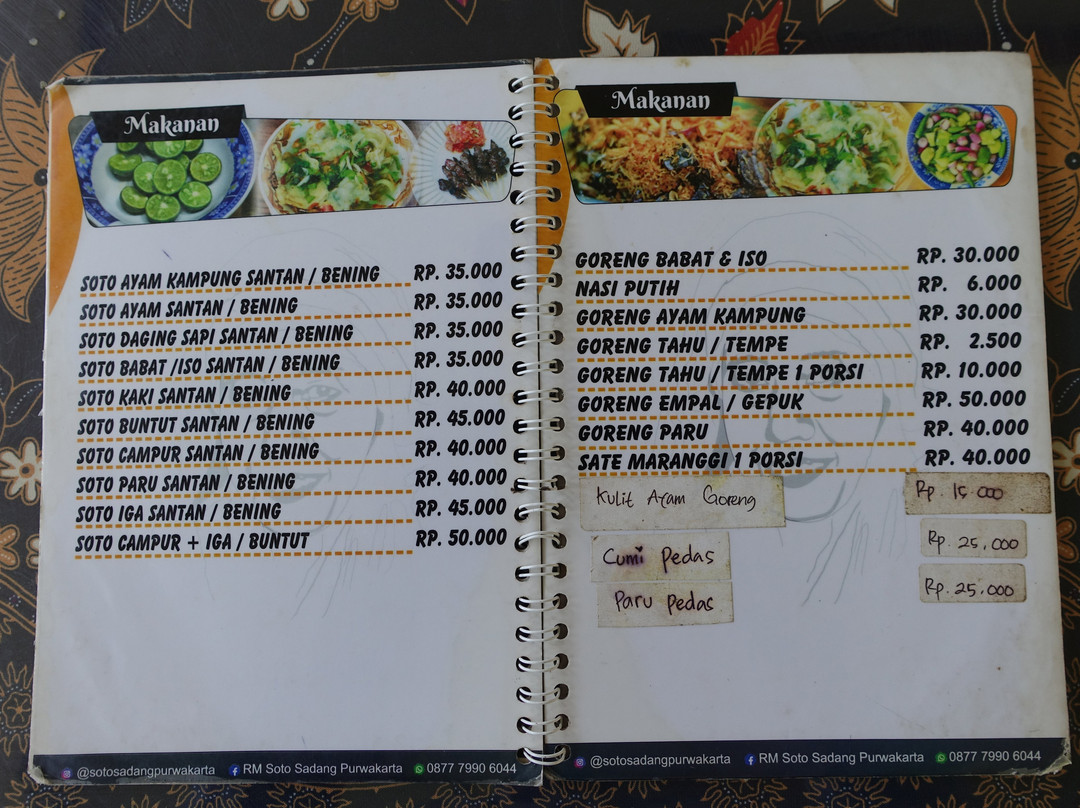 Makanan
SOTO AYAM KAMPUNG SANTAN / BENING RP. 35.000
SOTO AYAM SANTAN / BENING RP. 35.000
SOTO DAGING SAPI SANTAN / BENING RP. 35.000
SOTO BABAT /ISO SANTAN / BENING RP. 35.000
SOTO KAKI SANTAN / BENING RP. 40.000
SOTO BUNTUT SANTAN / BENING RP. 45.000
SOTO CAMPUR SANTAN / BENING RP. 40.000
SOTO PARU SANTAN / BENING RP. 40.000
SOTO IGA SANTAN / BENING RP. 45.000
SOTO CAMPUR + IGA / BUNTUT RP. 50.000
@sotosadangpurwakarta RM Soto Sadang Purwakarta 0877 7990 6044
Makanan
GORENG BABAT & ISO RP. 30.000
NASI PUTIH RP. 6.000
GORENG AYAM KAMPUNG RP. 30.000
GORENG TAHU / TEMPE RP. 2.500
GORENG TAHU / TEMPE 1 PORSI RP. 10.000
GORENG EMPAL / GEPUK RP. 50.000
GORENG PARU RP. 40.000
SATE MARANGGI 1 PORSI RP. 40.000
Kulit Ayam Goreng Rp. 15.000
Cumi Pedas Rp. 25.000
Paru Pedas Rp. 25.000
@sotosadangpurwakarta RM Soto Sadang Purwakarta 0877 7990 6044